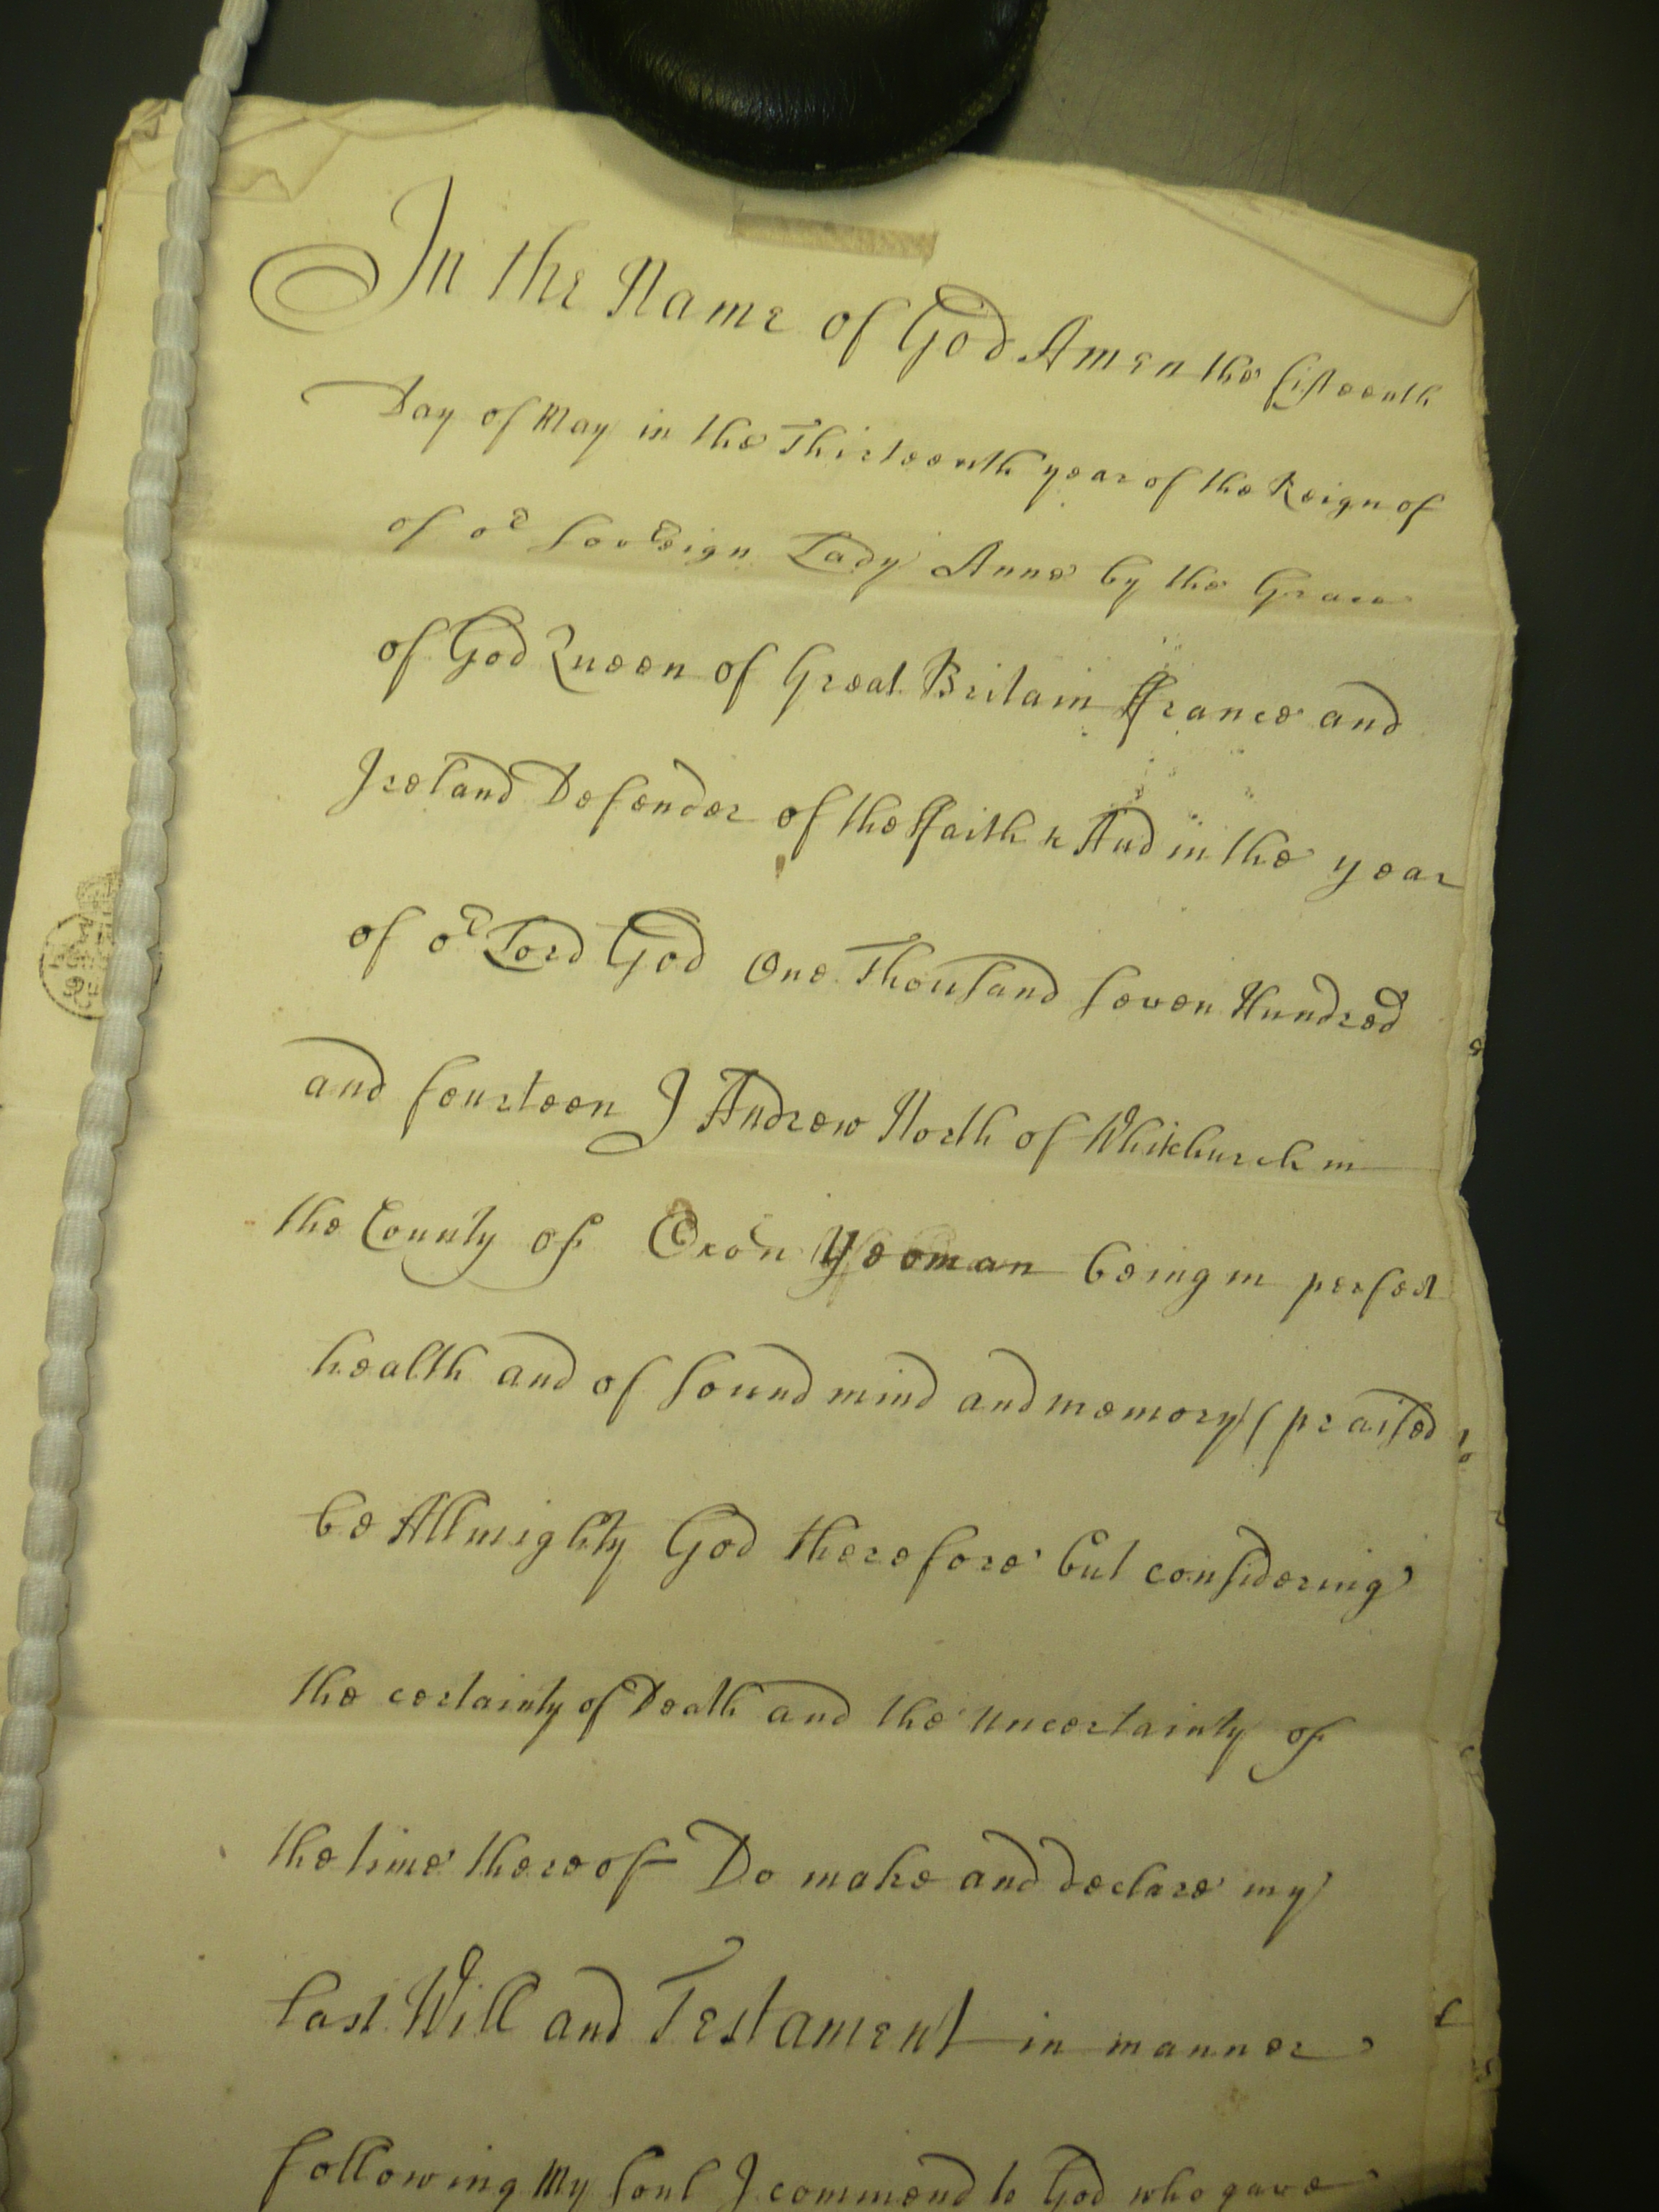 In the Name of God Amen the fifteenth
Day of May in the Thirteenth year of the Reign of
of or Soveʳeign Lady Anne by the Grace
of God Queen of Great Britain ffrance and
Ireland Defender of the ffaith & And in the year
of or Lord God One Thousand Seven Hundred
and fourteen I Andrew North of Whitchurch in
the County of Oxon Yeoman being in perfect
health and of sound mind and memory (praised
be Allmighty God therefore but considering
the certainty of Death and the uncertainty of
the time thereof Do make and declare my
last Will and Testament in manner
following My Soul I commend to God who gave